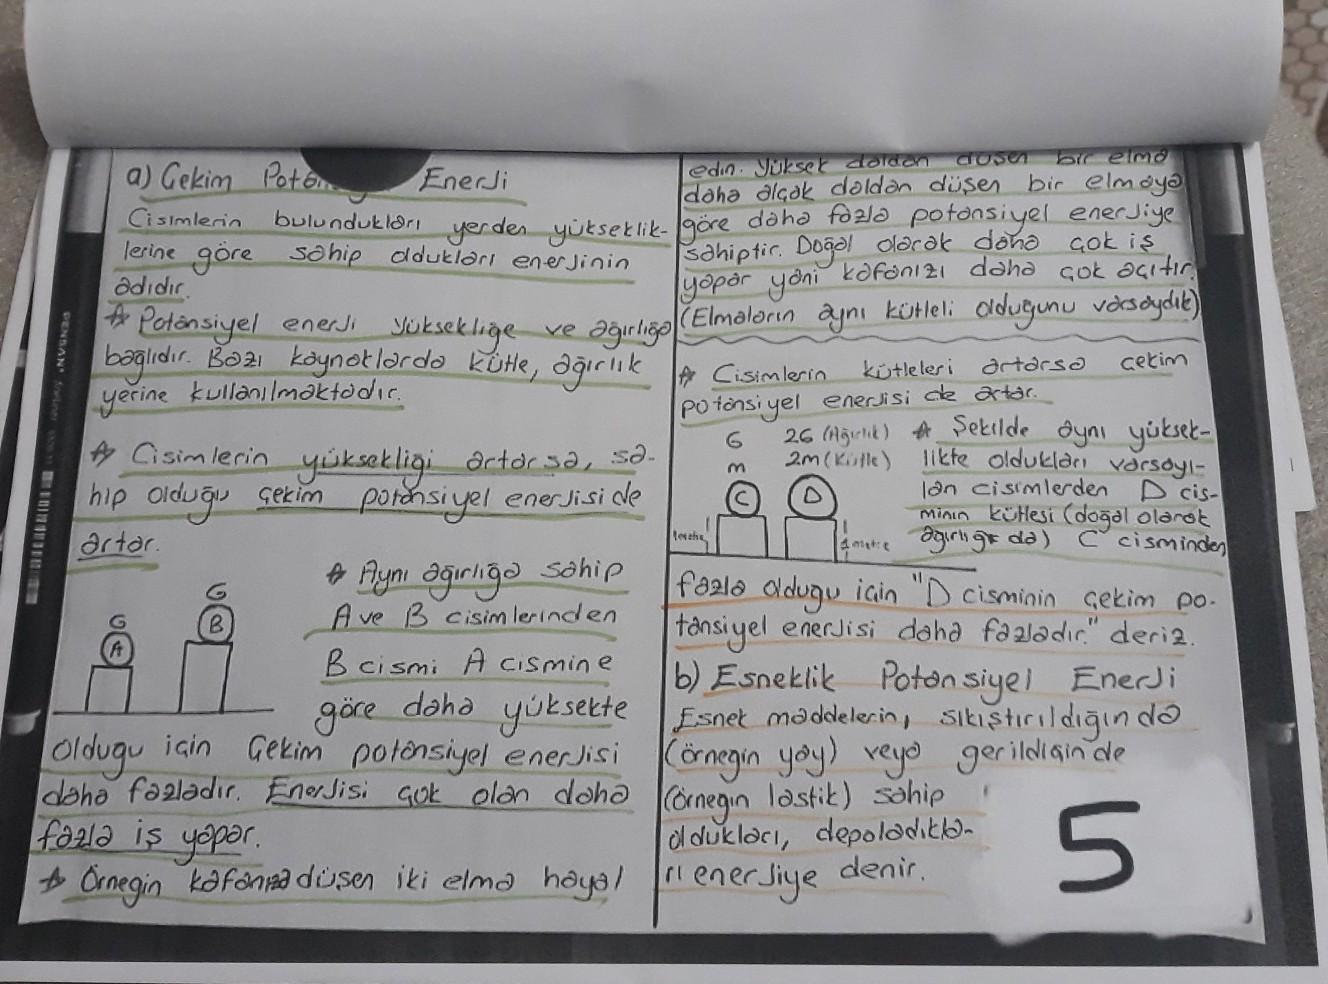 a) Çekim Enerji
Cisimlerin bulundukları yerden yükseklik-
lerine göre sahip oldukları enerjinin
adıdır.
Potansiyel enerji yüksekliğe ve ağırlığa
bağlıdır. Bazı kaynaklarda kütle, ağırlık
yerine kullanılmaktadır.
Cisimlerin yüksekliği artarsa, sa-
hip olduğu çekim potansiyel enerjisi de
artar.
G
G
A
B
Aynı ağırlığa sahip
A ve B cisimlerinden
B cismi A cismine
göre daha yüksekte
olduğu için Çekim potansiyel enerjisi
daha fazladır. Enerjisi çok olan daha
fazla iş yapar.
Örneğin kafanıza düşen iki elma hayal
edin. Yüksek daldan düşen bir elma
daha alçak daldan düşen bir elmaya
göre daha fazla potansiyel enerjiye
sahiptir. Doğal olarak daha çok iş
yapar yani kafanızı daha çok acıtır.
(Elmaların aynı kütleli olduğunu varsaydık)
Cisimlerin kütleleri artarsa çekim
potansiyel enerjisi de artar.
G 2G (Ağırlık)
m 2m (Kütle)
C D
1 metre
Şekilde aynı yüksek-
likte oldukları varsayı-
lan cisimlerden D cis-
minin kütlesi (doğal olarak
ağırlığı da) C cisminden
fazla olduğu için "D cisminin çekim po-
tansiyel enerjisi daha fazladır." deriz.
b) Esneklik Potansiyel Enerji
Esnek maddelerin, sıkıştırıldığında
(örneğin yay) veya gerildiğinde
(örneğin lastik) sahip
oldukları, depoladıkla-
rı enerjiye denir.
5